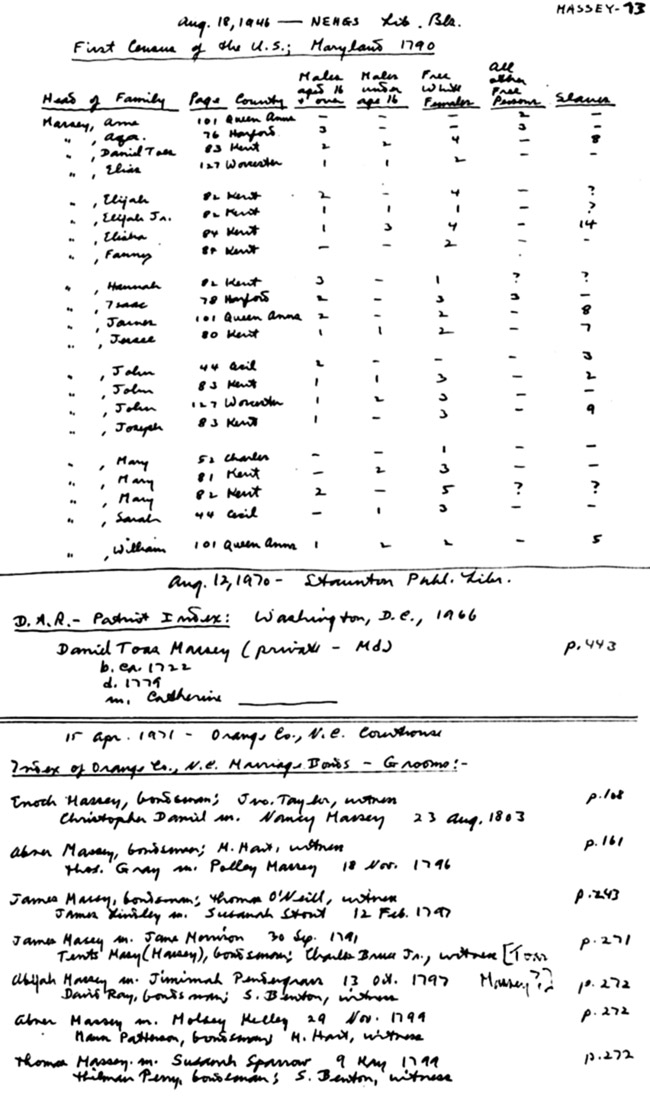 MASSEY-13
Aug. 18, 1946 — NEHGS Lib. Bk.
First Census of the U.S.; Maryland 1790
Head of Family Page County Males aged 16 + over Males under age 16 Free White Females All other Free Persons Slaves
Massey, Anne 101 Queen Anne - - - 2 -
" , Aqa. 76 Harford 3 - - 3 -
" , Daniel Toas 83 Kent 2 2 4 - 8
" , Elias 127 Worcester 1 1 2 - -
" , Elijah 82 Kent 2 - 4 - ?
" , Elijah Jr. 82 Kent 1 1 1 - ?
" , Elisha 84 Kent 1 3 4 - 14
" , Fanny 84 Kent - - 2 - -
" , Hannah 82 Kent 3 - 1 ? ?
" , Isaac 78 Harford 2 - 3 3 -
" , James 101 Queen Anne 2 - 2 - 8
" , Jesse 80 Kent 1 1 2 - 7
" , John 44 Cecil 2 - - - 3
" , John 83 Kent 1 1 3 - 2
" , John 127 Worcester 1 2 3 - -
" , Joseph 83 Kent 1 - 3 - 9
" , Mary 52 Charles - - 1 - -
" , Mary 81 Kent - 2 3 - -
" , Mary 82 Kent 2 - 5 ? ?
" , Sarah 44 Cecil - 1 3 - -
" , William 101 Queen Anne 1 2 2 - 5
Aug. 12, 1970 - Staunton Publ. Libr.
D.A.R. - Patriot Index: Washington, D.C., 1966
Daniel Toas Massey (private - Md) p. 443
b. ca. 1722
d. 1779
m. Catherine
15 Apr. 1971 - Orange Co., N.C. Courthouse
Index of Orange Co., N.C. Marriage Bonds - Grooms:-
Enoch Massey, bondsman; Jno. Taylor, witness p. 168
Christopher Daniel m. Nancy Massey 23 Aug. 1803
Abner Massey, bondsman; H. Hart, witness p. 161
Thos. Gray m. Polley Massey 18 Nov. 1796
James Massey, bondsman; Thomas O'Neill, witness p. 243
James Lindley m. Susanah Stout 12 Feb. 1797
James Masey m. Jane Morrison 30 Sep. 1791 p. 271
Tents Masy (Massey), bondsman; Charles Bruce Jr., witness [Toas
Abijah Massey m. Jimimah Pendergrass 13 Oct. 1797 Massey??] p. 272
David Ray, bondsman; S. Benton, witness
Abner Massey m. Molsey Kelley 29 Nov. 1799 p. 272
Mann Patterson, bondsman; H. Hart, witness
Thomas Massey m. Susanah Sparrow 9 May 1799 p. 272
Hilman Perry, bondsman; S. Benton, witness